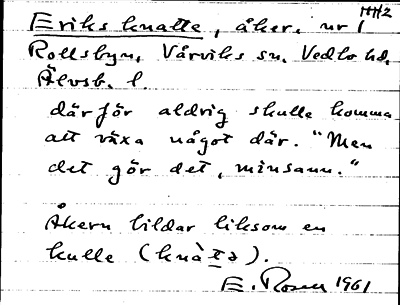 HH2
Eriks knatte, åker. nr 1
Rollsbyn, Vårviks sn. Vedbo hd.
Älvsb. l.
därför aldrig skulle komma
att växa något där. "Men
det gör det, minsann."
Åkern bildar liksom en
kulle (knàtə).
E. Rosen 1961